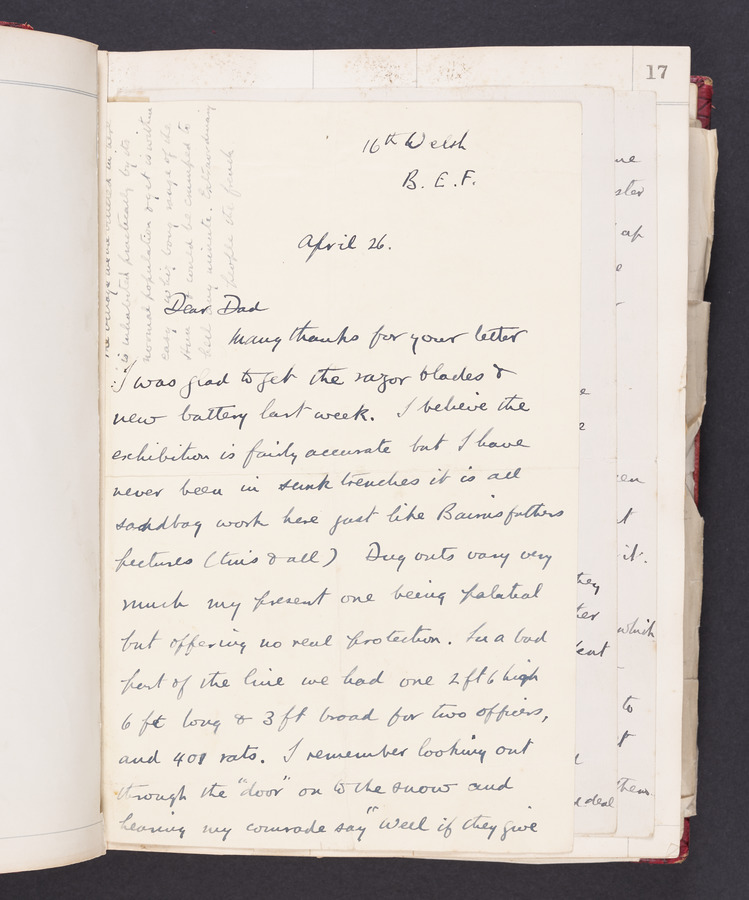 17
16th Welsh
B. E. F.
April 26.
Dear Dad
Many thanks for your letter
I was glad to get the razor blades &
new battery last week. I believe the
exhibition is fairly accurate but I have
never been in sunk trenches it is all
sandbag work here just like Bairnsfathers
pictures (tins & all) Dug outs vary very
much my present one being palatial
but offering no real protection. In a bad
part of the line we had one 2 ft 6 high
6 ft long & 3 ft broad for two officers,
and 401 rats. I remember looking out
through the "door" on to the snow and
hearing my comrade say "Well if they give
is inhabited practically by its
normal population & yet is within
easy whiz bang range of the
Hun & could be crumped to
hell any minute. Extraordinary
people the french
which
to
deal